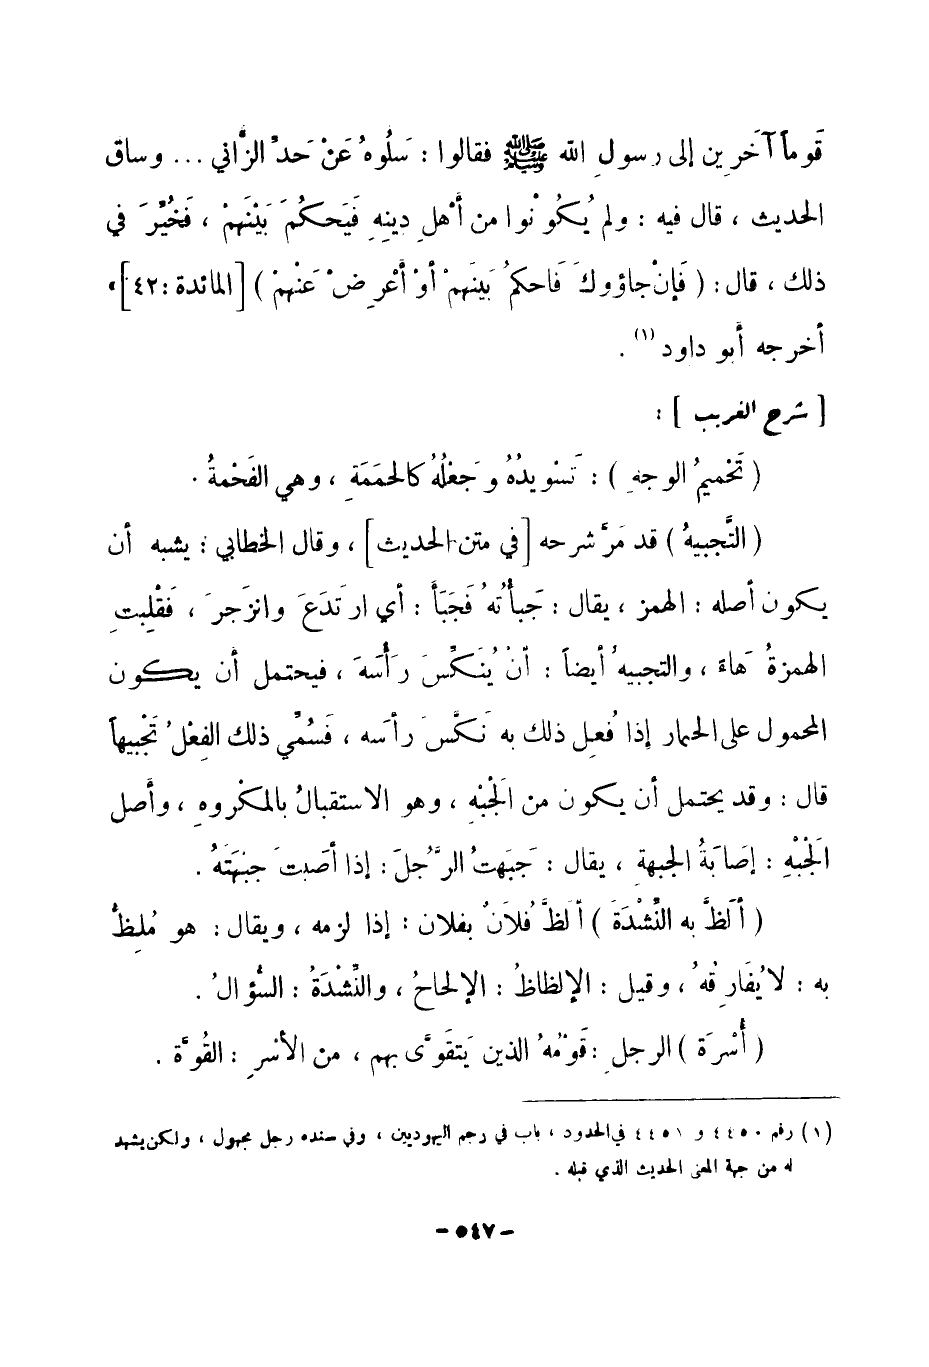 قَوماً آخَرِين إلى رسولِ الله ﷺ فقالوا : سَلُوهُ عَنْ حَدِّ الزَّاني ... وساق
الحديث ، قال فيه : ولم يُكُونْوا من أَهْلِ دينِهِ فَيَحكُمَ بَيْنَهمْ ، فَخُيِّرَ في
ذلك ، قال : ( فَإنْ جاؤوكَ فَاحكمُ بَينَهمْ أوْ أَعْرِضْ عَنْهمْ ) [المائدة : ٤٢]»
أخرجه أبو داود (١) .
[ شرح الغريب ] :
( تَحْميمُ الوجهِ ) : تَسْويدُهُ وجَعْلُهُ كالحمَمَةِ ، وهي الفَحْمةُ .
( التَّجبيهُ ) قد مَرَّ شرحه [في متن الحديث] ، وقال الخطابي : يشبه أن
يكون أصله : الهمز ، يقال : جَبأْتهُ فَجَبَأَ : أي ارتَدَعَ وانزَجرَ ، فَقُلِبتِ
الهمزةُ هَاءً ، والتجبيهُ أيضاً : أنْ يُنَكِّسَ رَأْسَهَ ، فيحتمل أن يكون
المحمول على الحمار إذا فُعِل ذلك به نَكَّسَ رأسَه ، فَسُمِّي ذلك الفِعْلُ تَجْبيهاً
قال : وقد يحتمل أن يكون من الجَبْهِ ، وهو الاستقبالُ بالمكْروهِ ، وأَصل
الجَبْهِ : إصَابَةُ الجبهةِ ، يقال : جَبَهتُ الرَّجُلَ : إذا أَصَبتَ جبْهَتَهُ .
( ألَظَّ به النِّشْدَةَ ) أَلَظَّ فُلانٌ بفلان : إذا لزمه ، ويقال : هو مُلِظٌّ
به : لا يُفَارِقُهُ ، وقيل : الإلظاظُ : الإلحاحُ ، والنِّشْدَةُ : السُّؤالُ .
( أُسْرَة ) الرجلِ : قَوْمُهُ الذين يَتقَوَّى بهم ، من الأَسْرِ : القُوَّة .
(١) رقم ٤٤٥٠ و ٤٤٥١ في الحدود ، باب في رجم اليهوديين ، وفي سنده رجل مجهول ، ولكن يشهد
له من جهة المعنى الحديث الذي قبله .
- ٥٤٧ -